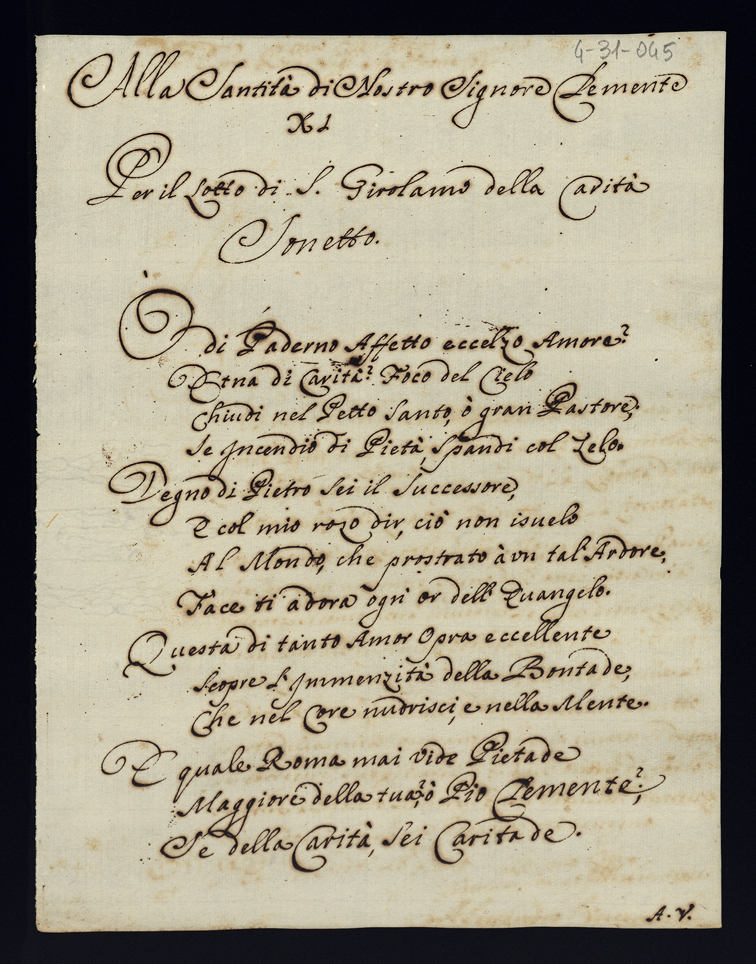 4-31-045
Alla Santità di Nostro Signore Clemente
XI
Per il Lotto di S. Girolamo della Carità
Sonetto.
O di Paderno Affetto eccelzo Amore?
Etna di Carità? Foco del Cielo
Chiudi nel Petto Santo, ò gran Pastore;
Se Incendio di Pietà spandi col Zelo.
Degno di Pietro sei il Successore,
E col mio rozo dir, ciò non isuelo
Al Mondo, che prostrato à vn tal'Ardore,
Face ti adora ogn'or dell'Euangelo.
Questa di tanto Amor Opra eccellente
Scopre l'Immenzità della Bontade,
Che nel Core nudrisci, e nella Mente.
E quale Roma mai vide Pietade
Maggiore della tua?, ò Pio Clemente?;
Se della Carità, sei Caritade.
A. V.